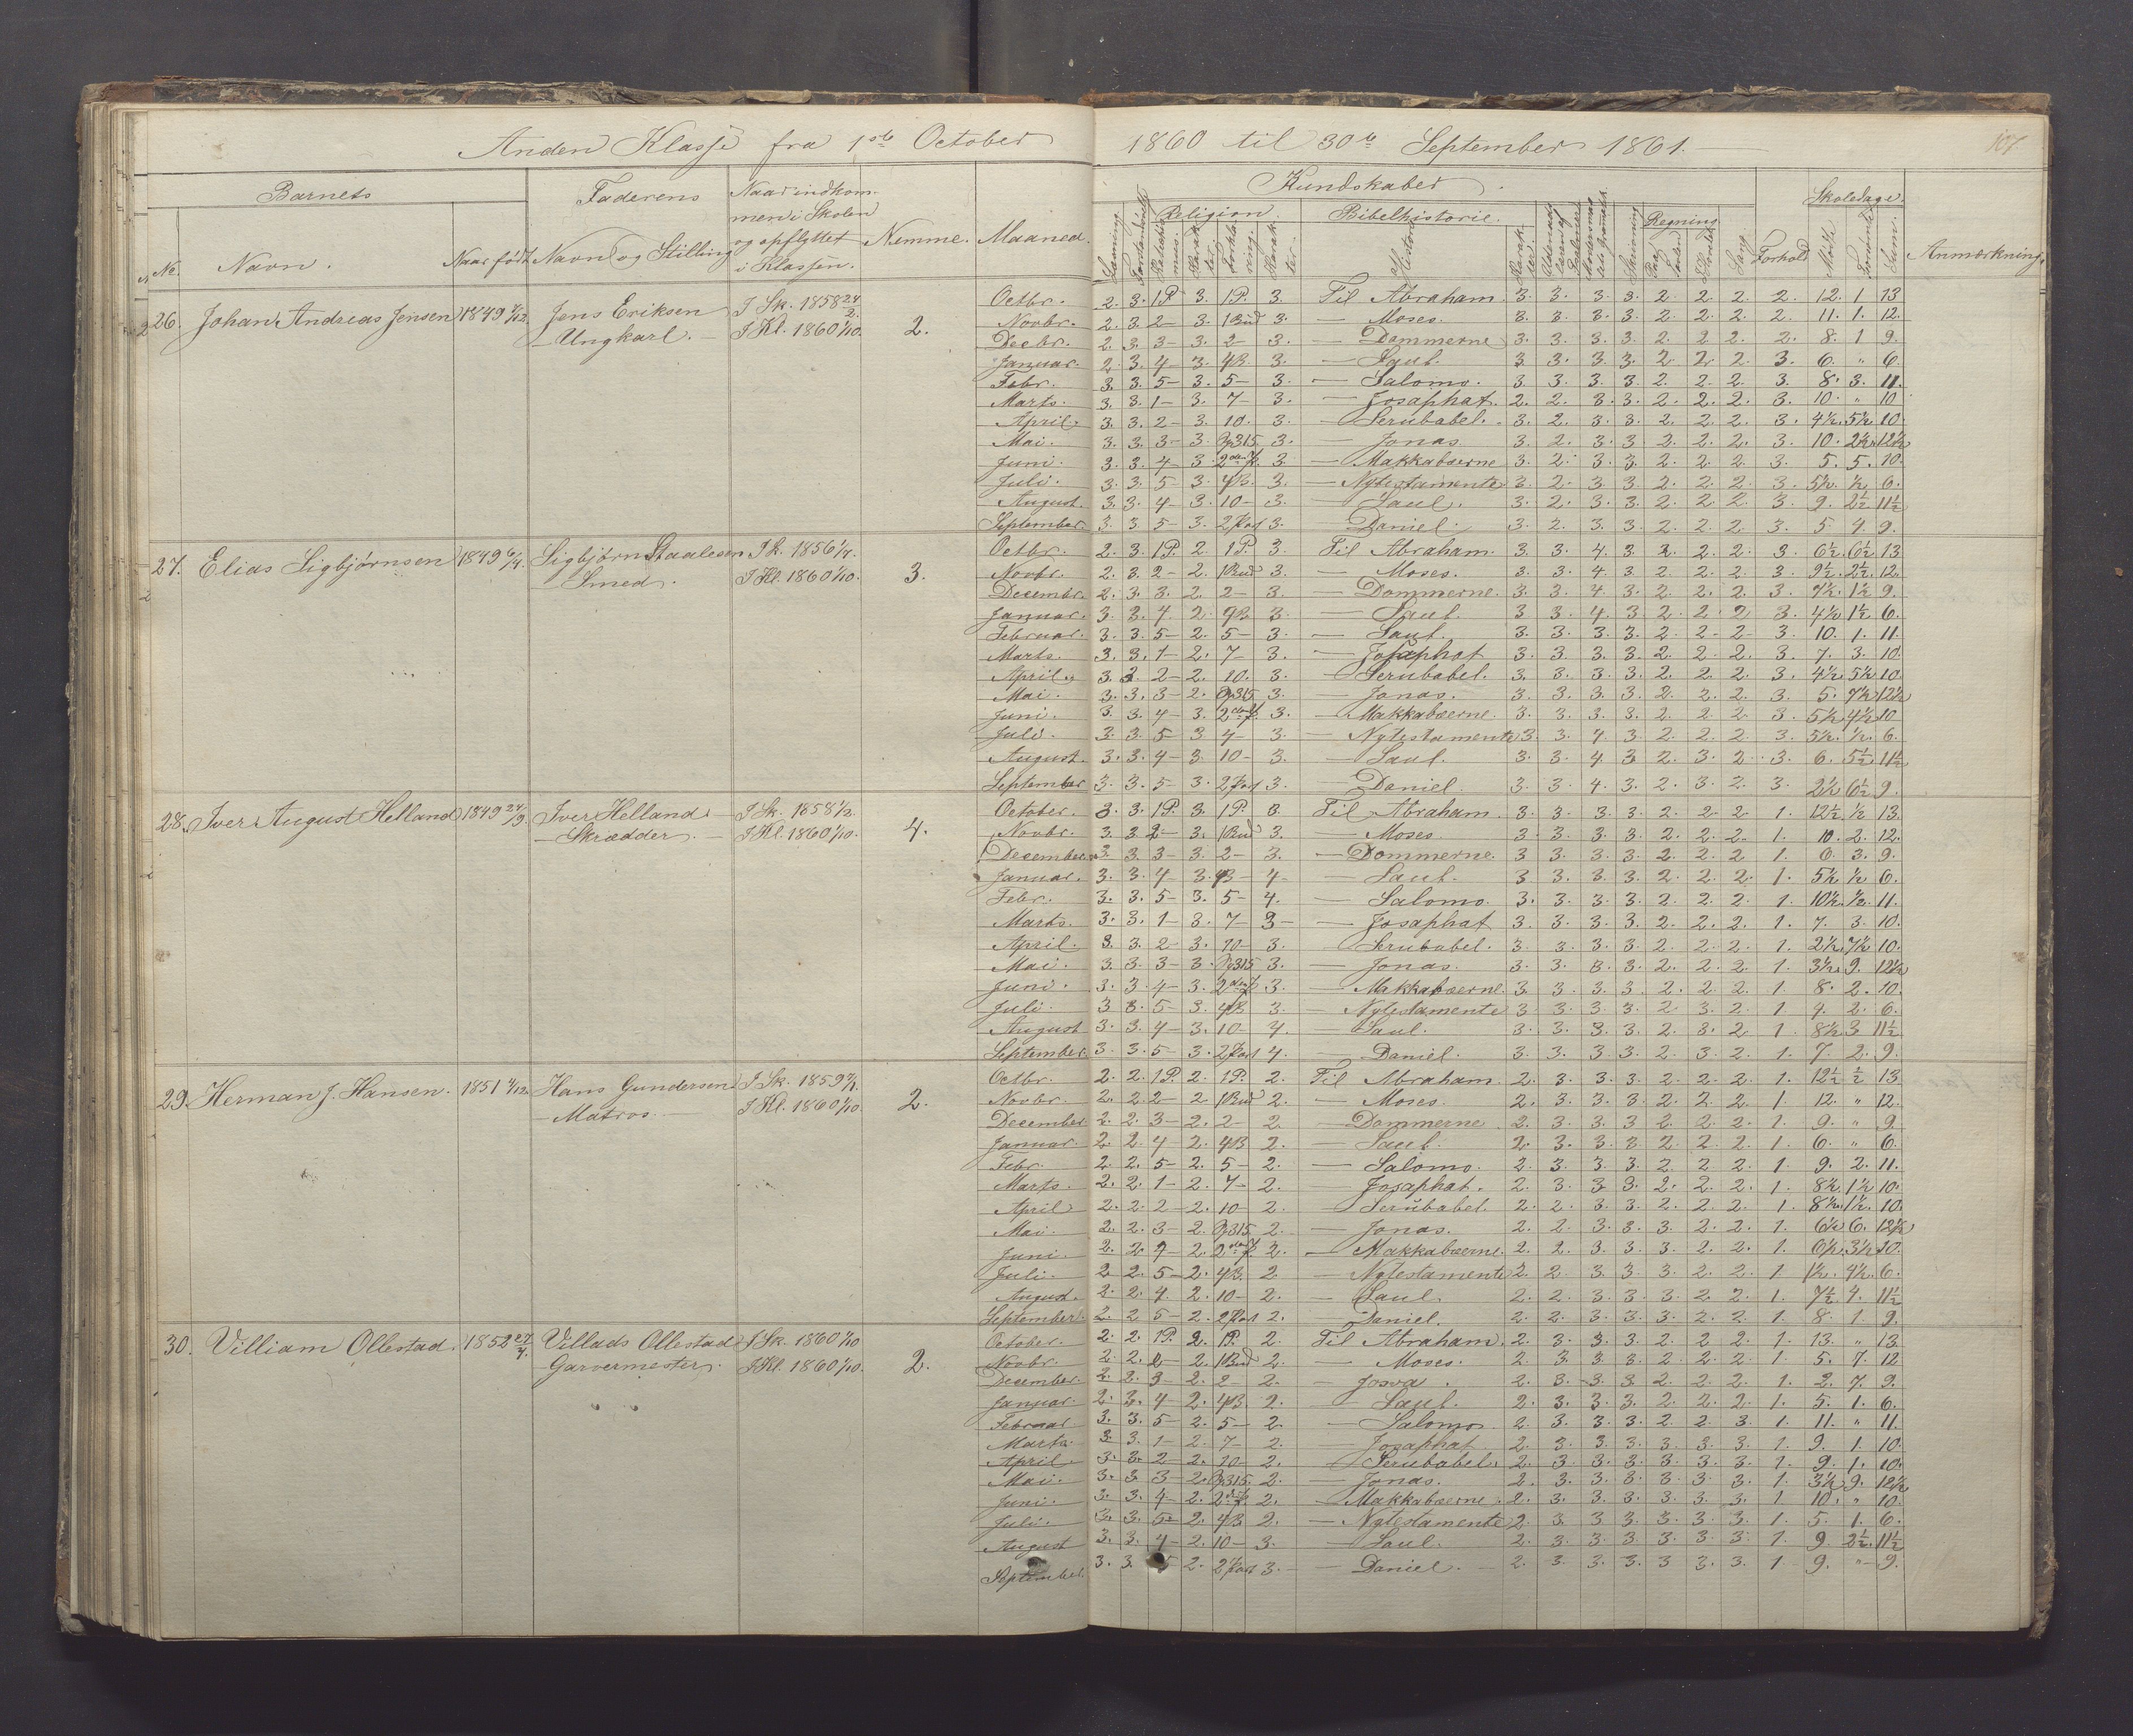 Anden Klasse fra 1ste October 1860 til 30te September 1861.
107
Barnets
Faderens
Naar indkommen i Skolen og opflyttet i Klassen.
Nemme.
Maaned.
Kundskaber.
Skoledage.
No. Navn. Naar født Navn og Stilling
Læsning. Religion. Bibelhistorie. Historie. Skrivning Regning Sang Forhold Mødte Forsømte Sum. Anmærkning.
26. Johan Andreas Jensen 1849 Jens Eriksen I Sk. 1858
Ungkarl. I Kl. 1860 1/10. 2.
Octbr. 2. 3. 1P. 3. 1P. 3. Til Abraham. 3. 3. 3. 3. 2. 2. 2. 2. 12. 1. 13
Novbr. 2. 3. 2 — 3. 1Bud 3. — Moses. 3. 3. 3. 3. 2. 2. 2. 2. 11. 1. 12.
Decbr. 2. 3. 3 — 3. 2 — 3. — Dommerne 3. 3. 3. 3. 2. 2. 2. 2. 8. 1 9.
Januar. 2. 3. 4 — 3. 4B. 3. — Saul. 3 3. 3. 3. 2 2. 2. 3. 6. " 6.
Febr. 3. 3. 5 — 3. 5 — 3. — Salomo. 3. 3. 3. 3. 2. 2. 2. 3. 8. 3. 11.
Marts. 3. 3. 1 — 3. 7 — 3. — Josaphat. 2. 2. 3. 3. 2. 2. 2. 3. 10. " 10
April. 3. 3. 2 — 3. 10. 3. — Serubabel. 3. 2. 3. 3. 2. 2. 2. 3. 4½. 5½. 10.
Mai. 3. 3. 3 — 3. Sp315. 3. — Jonas 3. 2. 3. 3. 2. 2. 2. 3. 10. 2½. 12½
Juni. 3. 3. 4 — 3. 3. — Makkabæerne 3. 2. 3. 3. 2. 2. 2. 3. 5. 5. 10.
Juli. 3. 3. 5 — 3. 4B. 3. — Nytestamente 3. 2. 3. 3. 2. 2. 2. 3. 5½. ½. 6.
August. 3. 3. 4 — 3. 10 — 3. — Saul. 3. 2. 3. 3. 2. 2. 2. 3. 9. 2½ 11½
September. 3. 3. 5 — 3. 3. Daniel. 3. 2. 3. 3. 2. 2. 2. 3. 5 4. 9.
27. Elias Sigbjørnsen 1849 Sigbjørn Staalesen I Sk. 1856
Smed. I Kl. 1860 1/10. 3.
Octbr. 2. 3. 1P. 2 1P. 3. Til Abraham. 3. 3. 4. 3. 2. 2. 2. 3. 6½. 6½ 13
Novbr. 2. 3. 2 — 2. 1Bud 3. — Moses. 3. 3. 4. 3. 2. 2. 2. 3. 9½. 2½. 12.
Decembr. 2. 3. 3. 2 2 — 3. — Dommerne. 3. 3. 4. 3. 2. 2. 2. 3. 7½. 1½ 9.
Januar. 3. 3. 4. 2. 3. — Saul. 3 3. 4. 3. 2. 2. 2 3. 4½ 1½ 6.
Februar. 3. 3. 5 — 2. 5 — 3. — Saul. 3. 3. 3. 3. 2. 2. 2 3. 10. 1. 11.
Marts. 3. 3. 1 — 2. 7 — 3. — Josaphat 3. 3. 3. 3. 2. 2. 2. 3. 7. 3. 10.
April. 3. 3. 2 — 2. 10. 3. — Serubabel. 3. 3. 3. 3. 2. 2. 2. 3. 4½. 5½ 10.
Mai. 3. 3. 3 — 2. Sp315. 3. — Jonas. 3. 3. 3. 3. 2. 3. 2. 3. 5. 7½ 12½
Juni. 3. 3. 4 — 3. 3. — Makkabæerne. 3. 3. 3. 3. 2. 2. 2. 3. 5½. 4½ 10
Juli. 3. 3. 5 3 4 — 3. — Nytestamente 3. 3. 4. 3. 2. 2. 2. 3. 5½. ½. 6.
August. 3. 3. 4 — 3. 10 — 3. — Saul. 3. 3. 4. 3. 2. 3. 2. 3. 6. 5½ 11½
September 3. 3. 5 — 3. 3. — Daniel. 3. 3. 4. 3. 2. 3. 2. 3. 2½ 6½ 9.
28. Iver August Helland 1849 Iver Helland I Sk. 1858
Skrædder. I Kl. 1860 1/10. 4.
October. 3. 3. 1P. 3. 1P. 3. Til Abraham. 3. 3. 3. 3. 2. 2. 2 1. 12½ ½ 13.
Novbr. 3. 3. 2 — 3. 1Bud 3. — Moses 3. 3. 3. 3. 2. 2. 2. 1. 10. 2. 12.
December. 3. 3. 3 — 3. 2 — 3. — Dommerne. 3 3. 3. 3. 2. 2. 2 1. 6. 3. 9.
Januar. 3. 3. 4 — 3. 4B — 4 — — Saul. 3 3. 3. 3. 2. 2. 2. 1. 5½ ½ 6.
Febr. 3. 3. 5 — 3. 5 — 4. — Salomo. 3. 3. 3. 3. 2. 2. 2. 1. 10½. ½. 11.
Marts. 3. 3. 1 — 3. 7 — 3 — — Josaphat 3. 3. 3. 3. 2. 2. 2. 1. 7. 3. 10.
April. 3. 3. 2 — 3. 10 — 3. — Serubabel. 3. 3. 3. 3. 2. 2. 2. 1. 2½. 7½ 10.
Mai. 3. 3. 3 — 3. Sp315 3. — Jonas. 3. 3. 3. 3. 2. 2. 2. 1. 3½. 9. 12½
Juni. 3. 3. 4 — 3. 3. — Makkabæerne. 3. 3. 3. 3. 2. 2. 2. 1. 8. 2. 10.
Juli. 3 3. 5 — 3. 4B 3. — Nytestamente 3. 3. 3. 3. 2. 3. 2. 1 4. 2. 6.
August 3. 3. 4 — 3. 10 — 4. — Saul. 3. 3. 3. 3. 2. 3. 2 1. 8½ 3 11½
September. 3. 3. 5 — 3. 4. — Daniel. 3. 3. 3. 3. 2. 3. 2. 1. 7. 2. 9.
29. Herman J. Hansen. 1851 Hans Gundersen I Sk. 1859
Matros. I Kl. 1860 1/10. 2.
Octbr. 2. 2. 1P. 2. 1P. 2. Til Abraham. 2. 3. 3. 3. 2. 2. 2. 1. 12½ ½ 13
Novbr. 2. 2. 2 — 2 1Bud 2. — Moses. 2. 3. 3. 3. 2. 2. 2. 1. 12. " 12.
December. 2. 2. 3 — 2. 2 — 2 — Dommerne. 2. 3. 3. 3 2. 2. 2. 1. 9. " 9.
Januar. 2. 2. 4 — 2. 4B 2. — Saul. 2. 3. 3. 3. 2. 2. 2. 1. 6. " 6.
Febr. 2. 2. 5 — 2. 5 — 2. — Salomo. 2. 3. 3. 3. 2. 2 2. 1. 9. 2. 11.
Marts. 2. 2. 1 — 2. 7 — 2. — Josaphat. 2. 3. 3. 3. 2. 2. 2. 1. 8½. 1½ 10.
April 2. 2. 2 — 2. 10 — 2. — Serubabel. 2. 2. 3. 3. 2. 2. 2. 1. 8½. 1½. 10.
Mai. 2. 2. 3 — 2. Sp315. 2. — Jonas. 2. 2. 3. 3. 3. 2. 2. 1. 6½ 6. 12½
Juni. 2. 2. 4 — 2. 2. — Makkabæerne. 2. 2. 3. 3. 3. 2. 2. 1. 6½. 3½ 10.
Juli. 2. 2. 5 — 2. 4B. 2. — Nytestamente 2. 2 3. 3. 3. 2. 2. 1. 1½. 4½. 6.
August. 2. 2. 4. 2. 10 — 2. — Saul. 2. 2. 3. 3. 3. 2 2. 1. 7½. 4. 11½
September. 2. 2 5 — 2. 2. Daniel. 2. 2. 3. 3. 3. 2. 2. 1. 8. 1. 9.
30. Villiam Ollestad. 1852 Villads Ollestad I Sk. 1860 1/10
Garvermester. I Kl. 1860 1/10. 2.
October. 2. 2. 1P. 2. 1P. 2. Til Abraham. 2. 3. 3. 3. 2. 2. 2 1. 13. " 13.
Novbr. 2. 2. 2 — 2. 1Bud 2. — Moses. 2. 3. 3. 3. 2. 2. 2. 1. 5. 7. 12
December. 2. 2. 3 — 2. 2 — 2. — Josva. 2. 3. 3. 3. 2. 2. 2. 1. 2. 7. 9.
Januar. 2. 3. 4 — 2. 4B. 2. — Saul. 2. 3. 3. 3. 2. 2. 2. 1. 5. 1. 6.
Februar 3. 3. 5 — 2. 5 — 2. — Salomo 2. 3. 3. 3. 2. 2. 3. 1. 11. " 11.
Marts. 3. 3. 1 — 2. 7 — 2. — Josaphat 2. 3. 3. 3. 3. 3. 3. 1. 9. 1. 10.
April. 3. 3. 2 — 2. 10 — 2. — Serubabel. 2. 3. 3. 3. 3. 3. 3. 1. 9. 1. 10.
Mai. 3. 3. 3 — 2. Sp315. 2. — Jonas. 2. 3. 3. 3. 3. 3. 3. 1. 3½ 9. 12½
Juni. 3. 3. 4 — 2. 2. — Makkabæerne. 2. 3. 3. 3. 3. 3. 3. 1. 10. " 10.
Juli. 3. 3. 5 — 2. 4B. 2. — Nytestamente 2. 3. 3. 3. 3. 3. 3. 1. 5. 1. 6.
August 3. 3. 4 — 2. 10 — 3. — Saul. 2. 3. 3. 3. 3. 3. 3. 1. 9. 2½. 11½
September. 3. 3. 5 2. 3. — Daniel. 2. 3. 3. 3. 3 3. 3. 1. 9. " — 9.